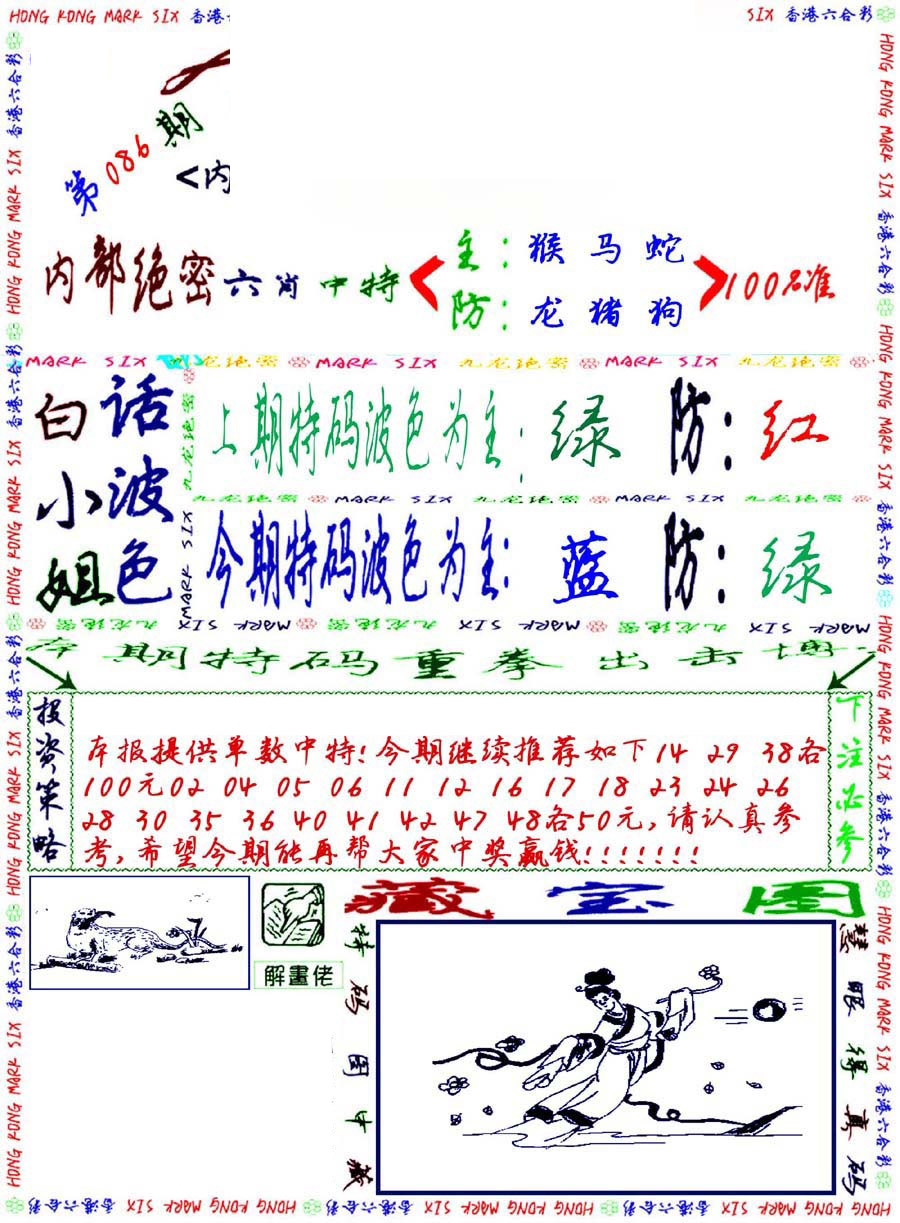 HONG KONG MARK SIX 香港
SIX 香港六合彩
第086期
<内
内部绝密六肖中特
主：猴 马 蛇
防：龙 猪 狗
100%准
MARK SIX 九龙绝密 MARK SIX 九龙绝密 MARK SIX 九龙绝密
白话
小波
姐色
上期特码波色为主：绿 防：红
九龙绝密 MARK SIX 九龙绝密 MARK SIX 九龙绝密
今期特码波色为主：蓝 防：绿
MARK SIX 九龙绝密 MARK SIX 九龙绝密 MARK SIX 九龙绝密
期特码重拳出击
投资策略
本报提供单数中特!今期继续推荐如下14 29 38各
100元02 04 05 06 11 12 16 17 18 23 24 26
28 30 35 36 40 41 42 47 48各50元,请认真参
考,希望今期能再帮大家中奖赢钱!!!!!!!
下注必参
解畫佬
藏宝图
特码图中藏
慧眼得真码
HONG KONG MARK SIX 香港六合彩 HONG KONG MARK SIX 香港六合彩 HONG KONG MARK SIX 香港六合彩